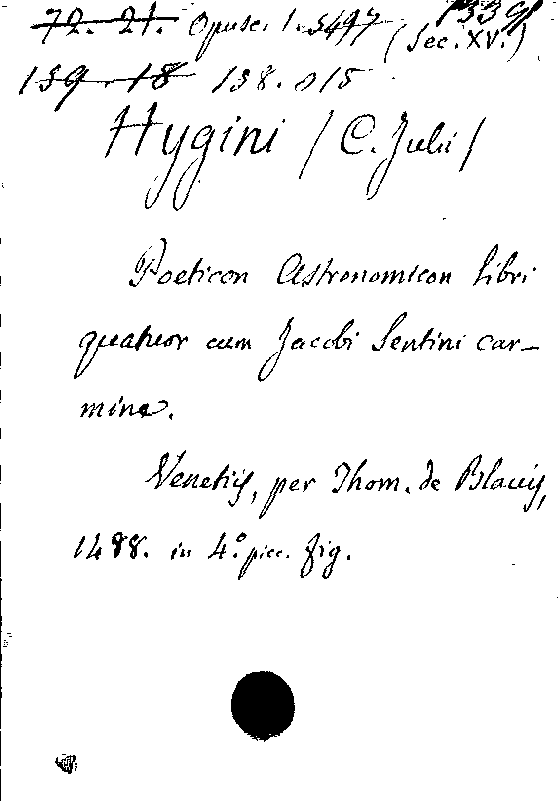 72. 21. Opusc. 1.3497 (Sec. XV.)
159. 18 138. 015
Hygini / C. Julii /
Poeticon Astronomicon libri
quatuor cum Jacobi Sentini car-
mine.
Venetiis, per Thom. de Blaviis,
1488. in 4.° picc. fig.